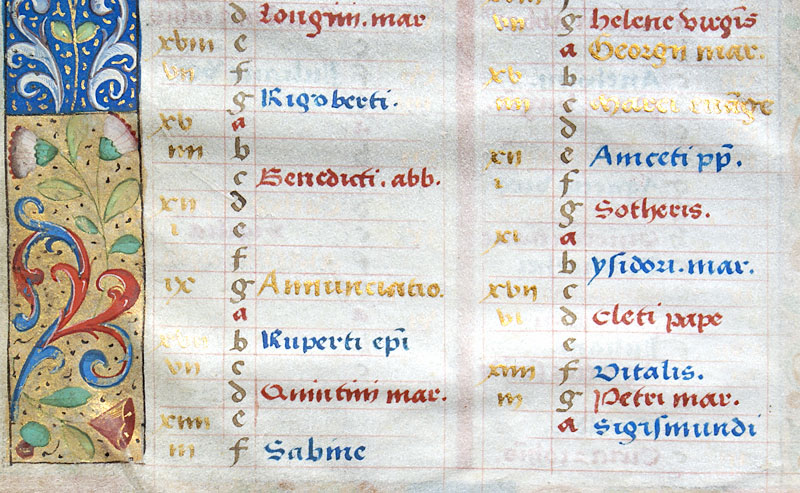 d Longini. mar
xviii e
vii f
g Rigoberti.
xv a
iiii b
c Benedicti. abb.
xii d
i e
f
ix g Annunciatio.
a
xvii b Ruperti epi
vii c
d Quintini mar.
xiiii e
iii f Sabine
vii g helene virgis
a Georgii mar.
xv b
iiii c Marci
d
xii e Aniceti pp.
i f
g Sotheris.
xi a
b ysidori. mar.
xvii c
vi d Cleti pape
e
xiiii f Vitalis.
iii g Petri mar.
a Sigismundi